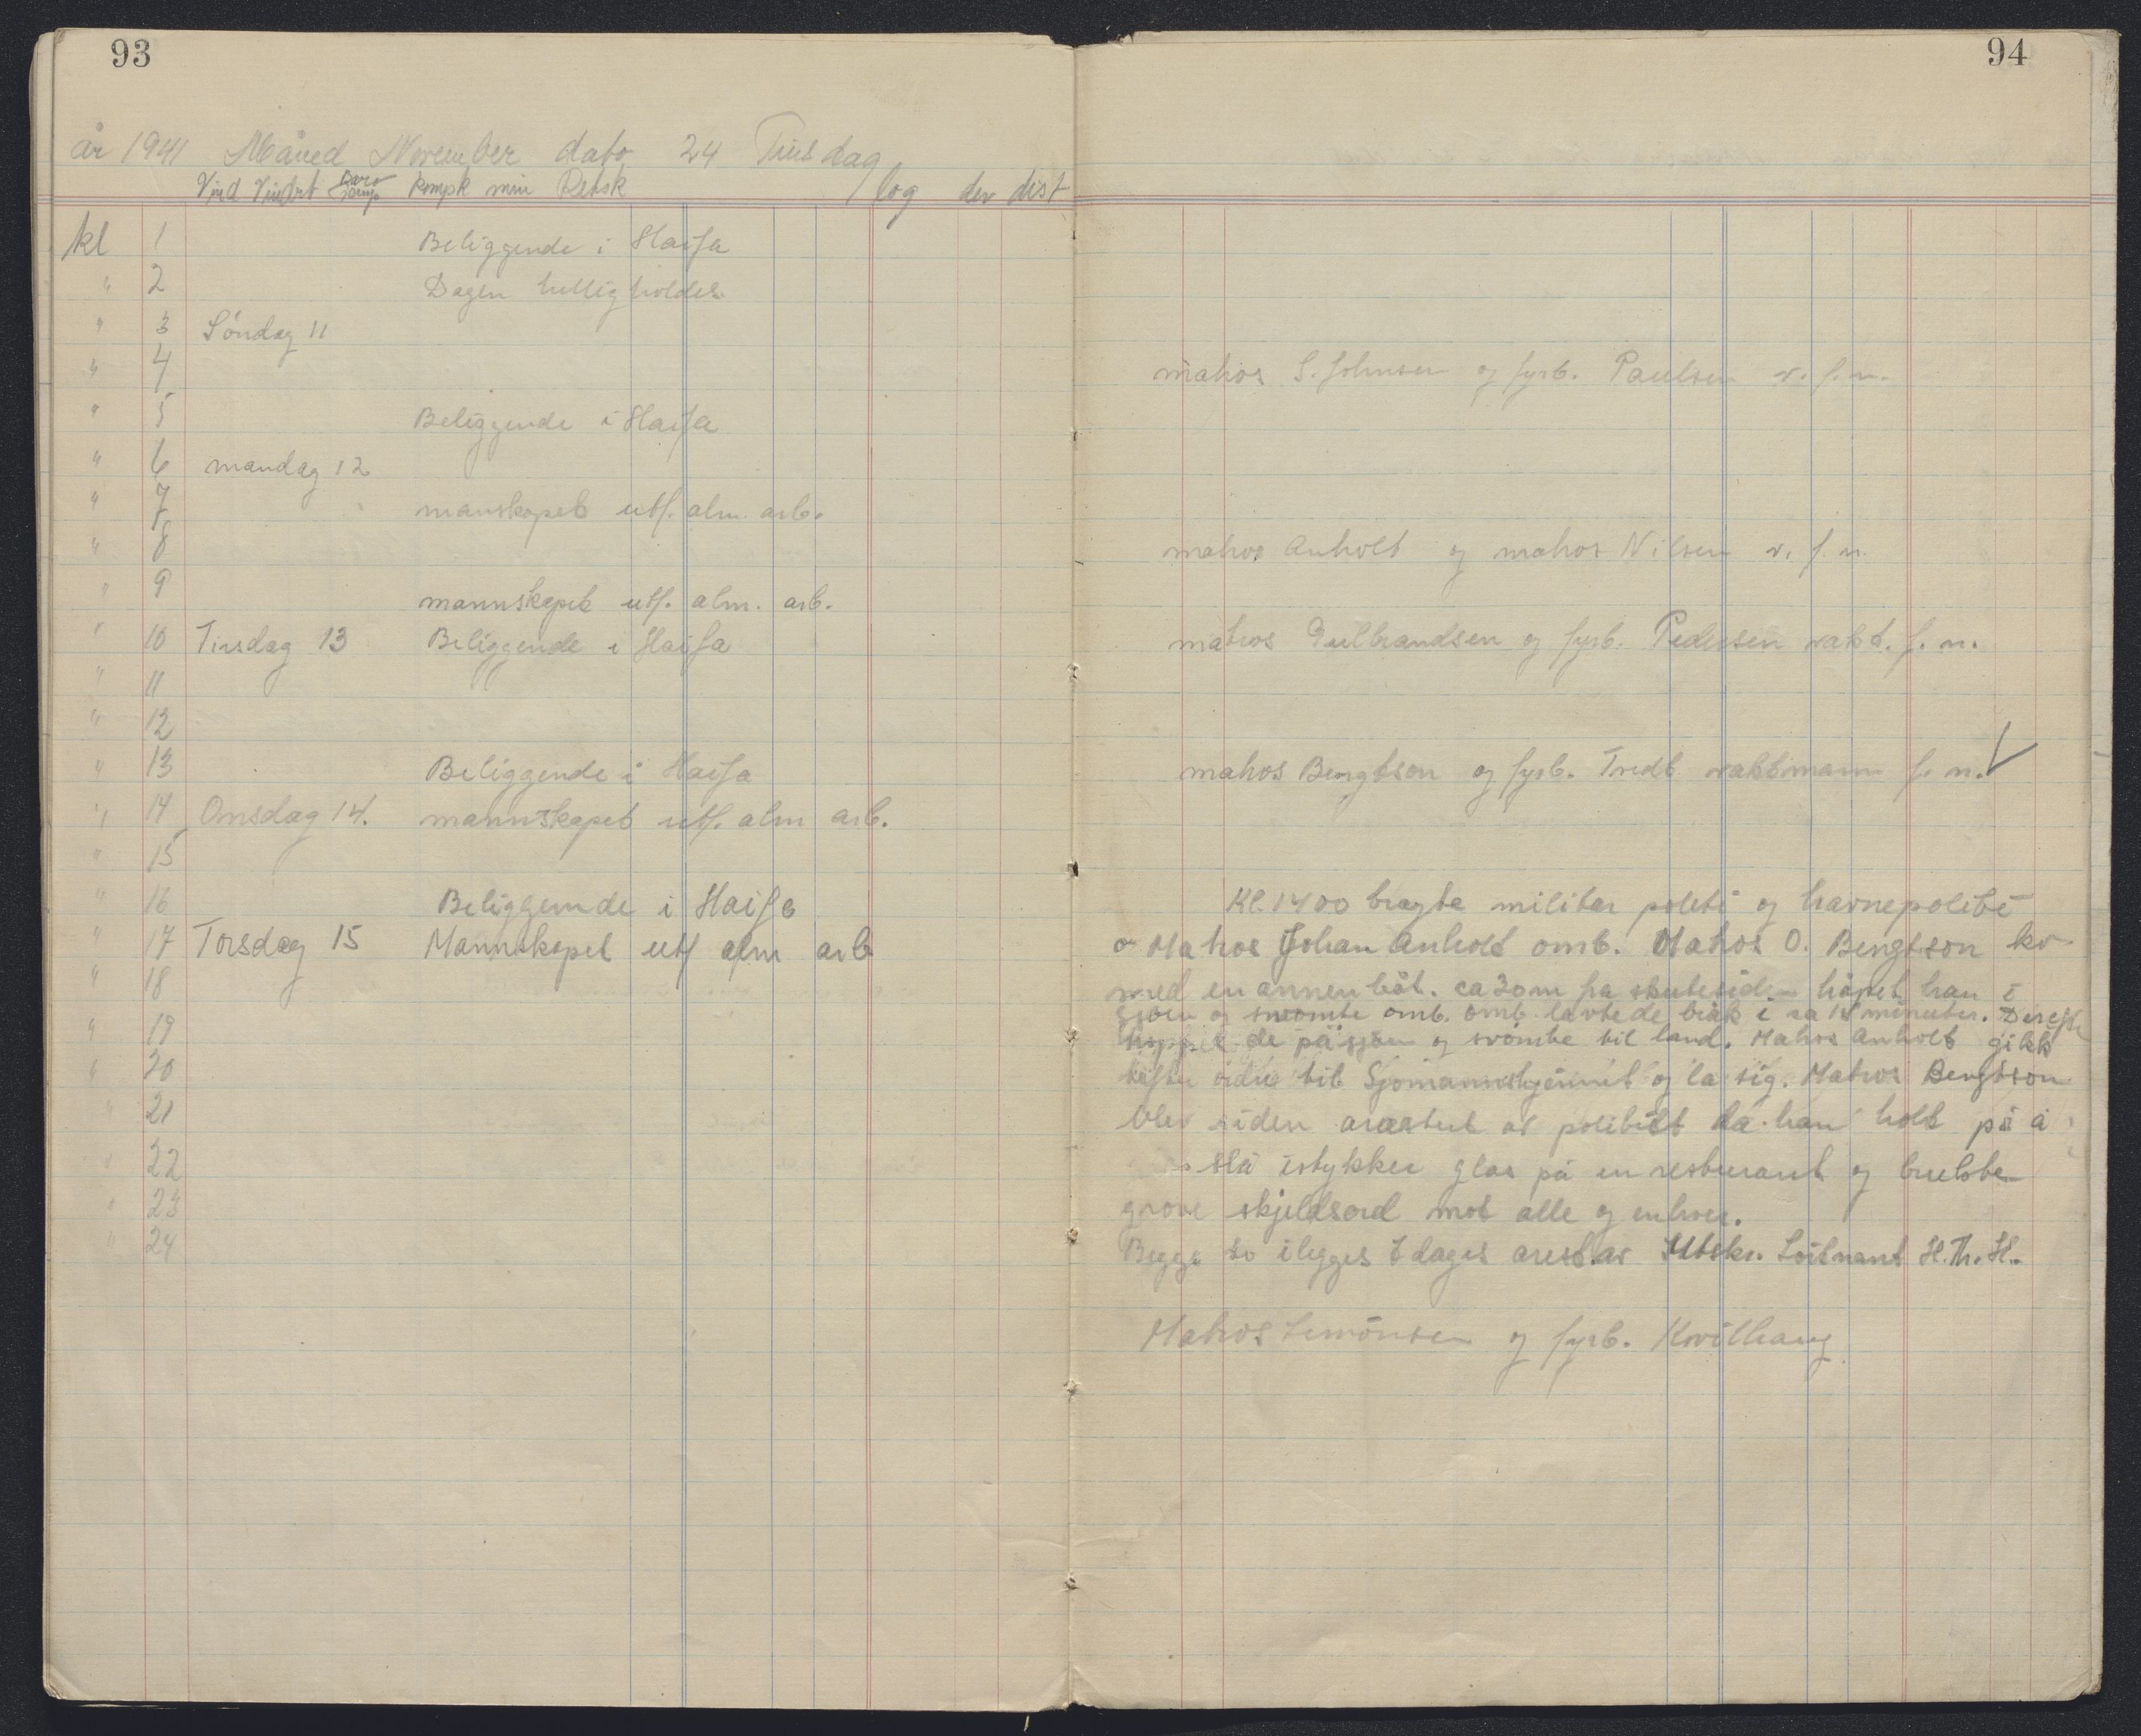 93
år 1941 Måned November dato 24 Tirsdag
Vind Vindst Baro Temp kompk min Retsk log dev dist
kl 1 Beliggende i Haifa
" 2 Dagen helligholdes.
" 3 Söndag 11
" 4
" 5 Beliggende i Haifa
" 6 mandag 12
" 7 manskapet utf. alm. arb.
" 8
" 9 mannskapet utf. alm. arb.
" 10 Tirsdag 13 Beliggende i Haifa
" 11
" 12
" 13 Beliggende i Haifa
" 14 Onsdag 14. mannskapet utf. alm arb.
" 15
" 16 Beliggende i Haifa
" 17 Torsdag 15 Mannskapet utf alm arb
" 18
" 19
" 20
" 21
" 22
" 23
" 24
94
matros S. Johnsen og fyrb. Paulsen v. f. n.
matros Anholt og matros Nilsen v. f. n.
matros Gulbrandsen og fyrb. Pedersen vakt. f. n.
matros Bengtson og fyrb. Tvedt vaktmann f. n.
Kl. 1400 bragte militær politi og havnepoliti
Matros Johan Anholt omb. Matros O. Bengtson
med en annen båt. ca 30 m fra skutesiden han i
sjöen og svömte omb. Omb. lavte de bråk i ca 15 minuter. Derefte
hoppet de på sjöen og svömte til land. Matros Anholt gikk
til Sjömannshjemmet og la sig. Matros Bengtson
blev siden arrestert av politiet da han holt på å
slå istykker glas på en resturant og brukte
grove skjeldsord mot alle og enhver.
Begge to ilegges dages arest av Utskr. Löitnant H. Th. H.
Matros Simonsen og fyrb. Kvilhaug